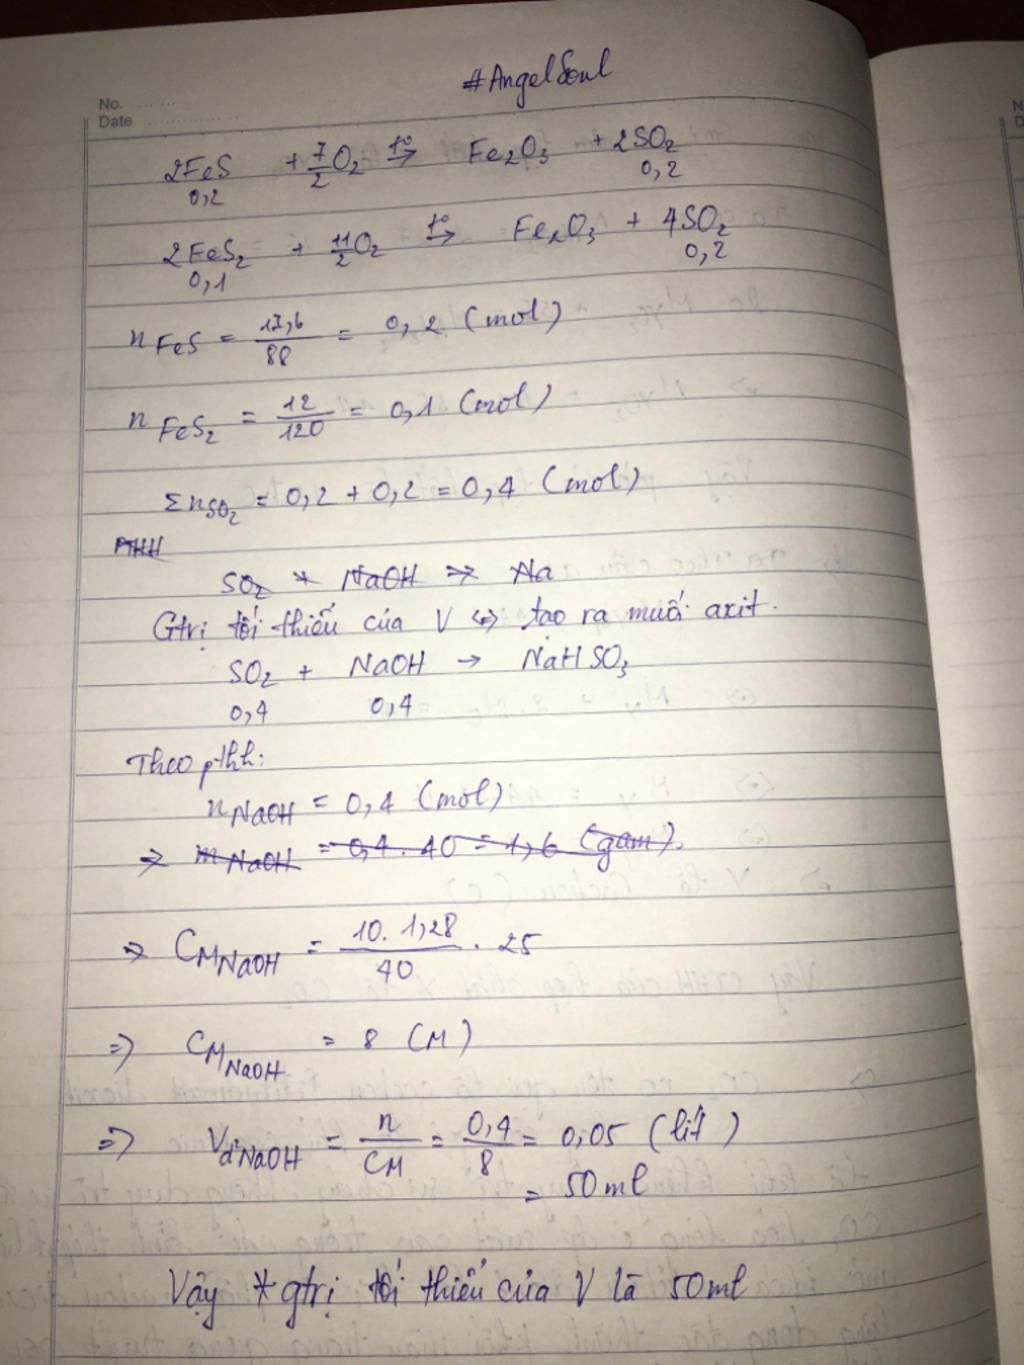 #AngelSoul
No. ............
Date ..................
2FeS + 7/2 O₂ →(t°) Fe₂O₃ + 2SO₂
0,2 0,2
2FeS₂ + 11/2 O₂ →(t°) Fe₂O₃ + 4SO₂
0,1 0,2
n FeS = 17,6/88 = 0,2 (mol)
n FeS₂ = 12/120 = 0,1 (mol)
Σn SO₂ = 0,2 + 0,2 = 0,4 (mol)
PTHH
SO₂ + NaOH → Na
Gtrị tối thiểu của V ⇔ tạo ra muối axit.
SO₂ + NaOH → NaHSO₃
0,4 0,4
Theo pthh:
n NaOH = 0,4 (mol)
⇒ m NaOH = 0,4 . 40 = 1,6 (gam).
⇒ CM NaOH = 10. 1,28/40 . 25
⇒ CM NaOH = 8 (M)
⇒ Vd² NaOH = n/CM = 0,4/8 = 0,05 (lít)
= 50ml
Vậy * gtrị tối thiểu của V là 50ml